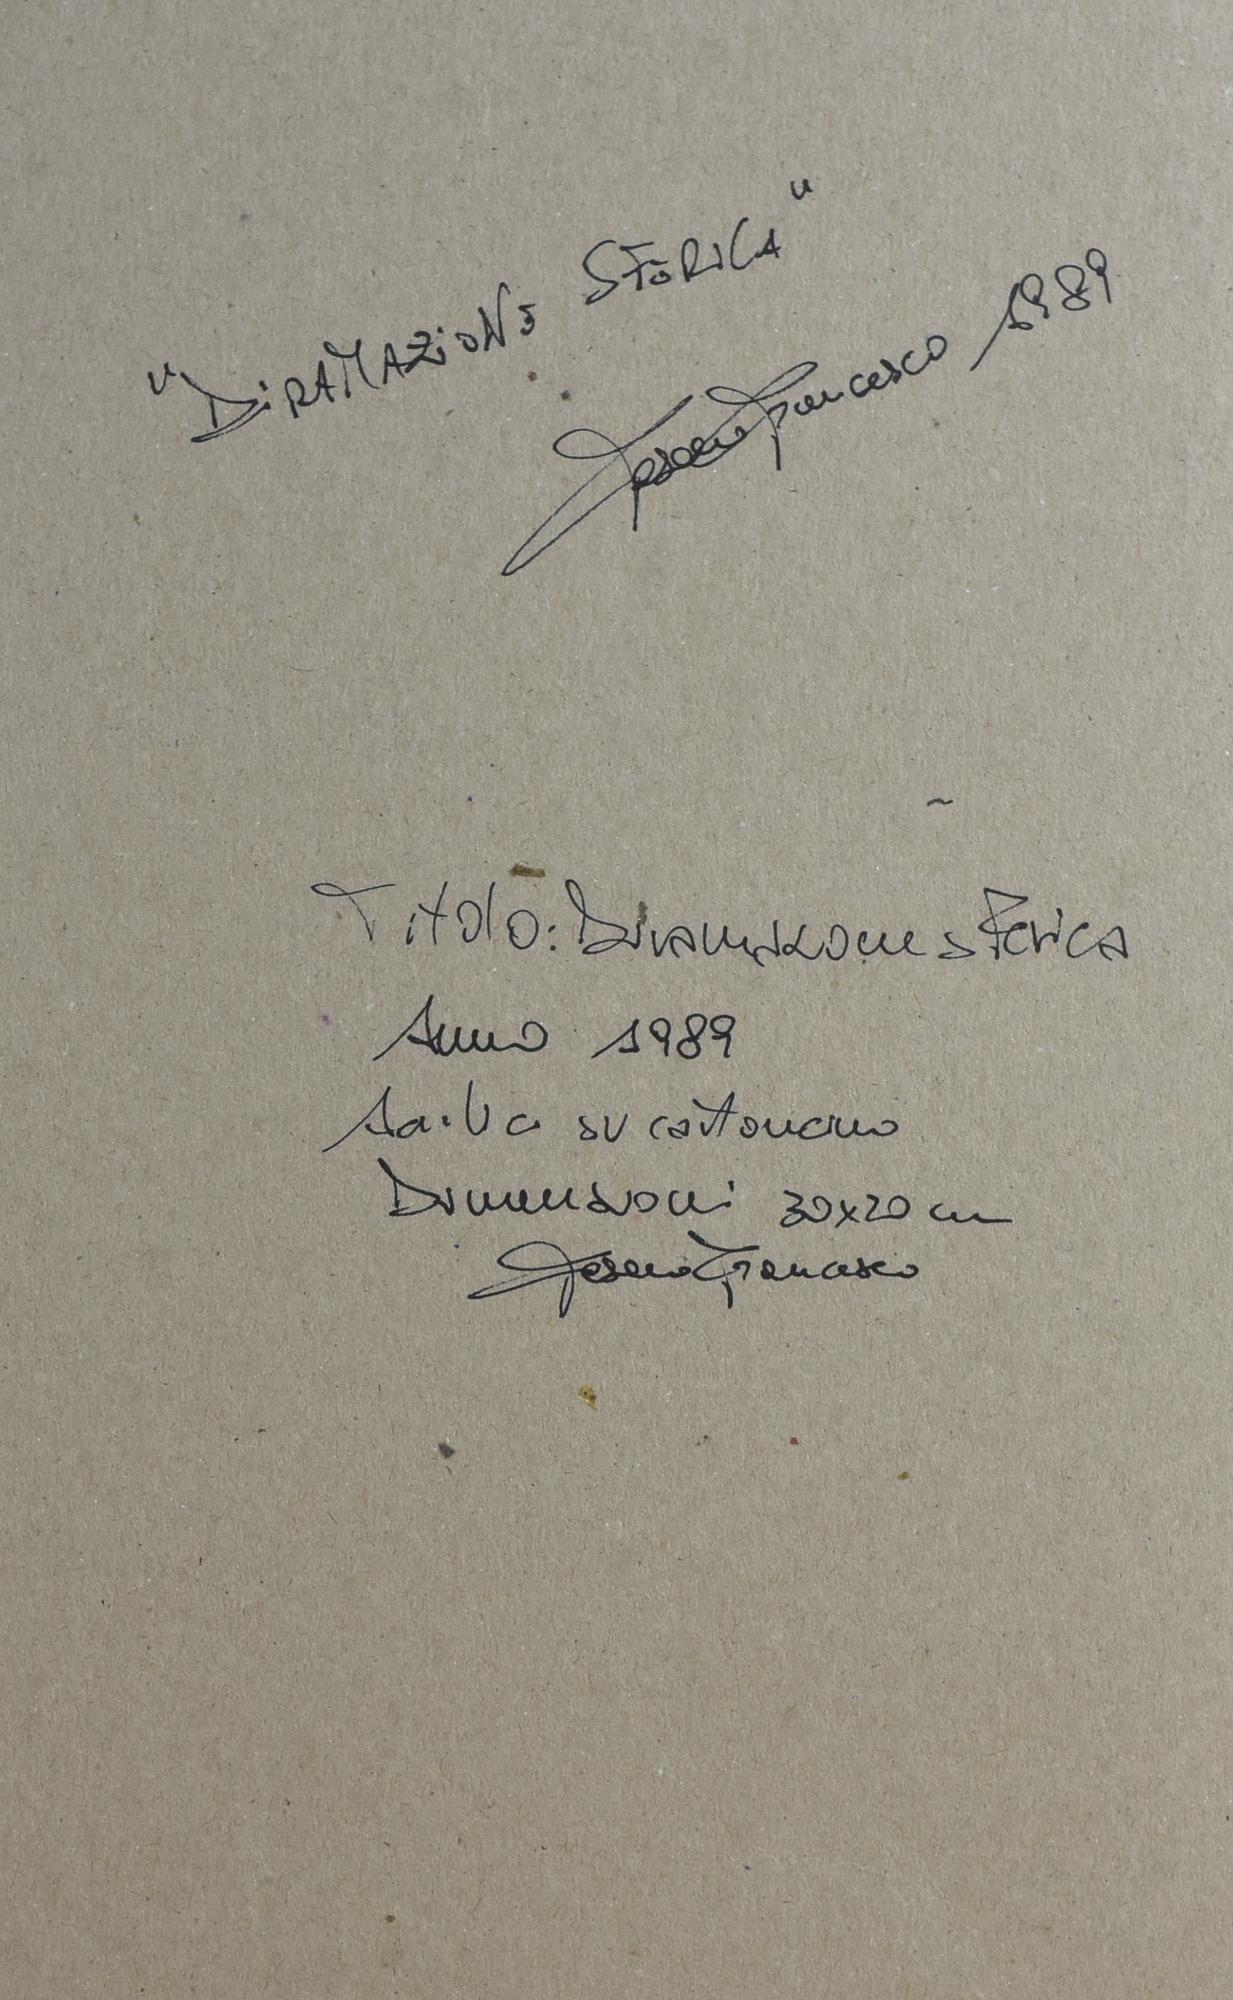 "DiRAMAZiONE STORiCA"
Francesco 1989
Titolo: Diramazione sferica
Anno 1989
su cartoncino
Dimensioni 30x20 cm
Francesco